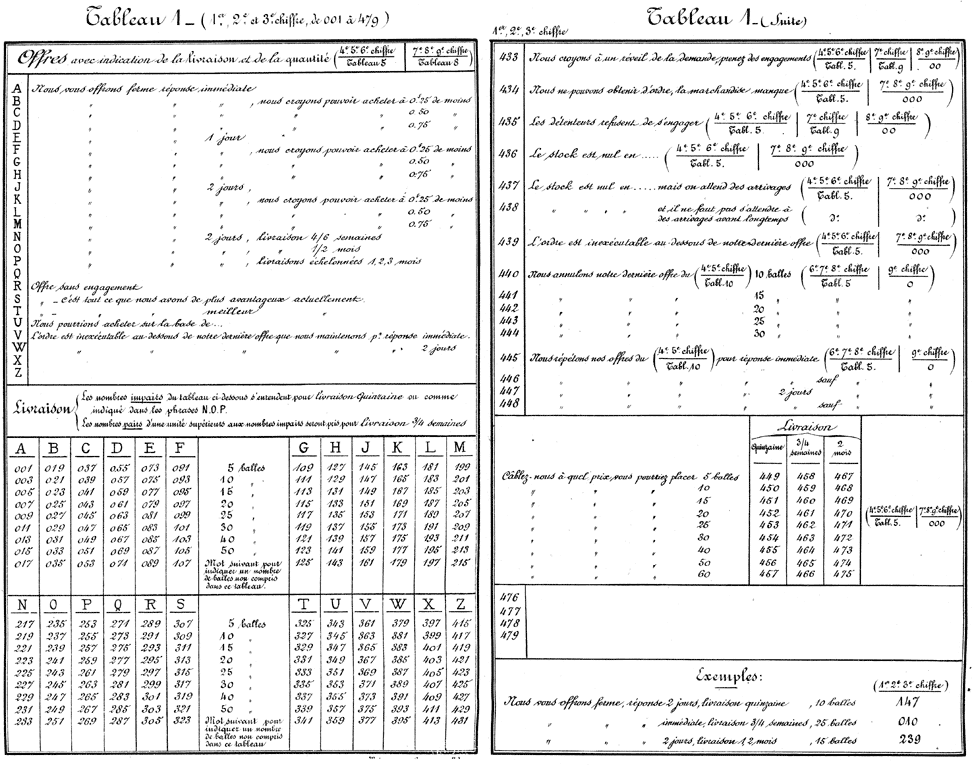 Tableau 1 _ (1er, 2e et 3e chiffre, de 001 à 479)
Offres avec indication de la livraison et de la quantité (4e 5e 6e chiffre / Tableau 5 | 7e 8e 9e chiffre / Tableau 8)
A Nous vous offrons ferme réponse immédiate
B " " " , nous croyons pouvoir acheter à 0.25 de moins
C " " " " 0.50 "
D " " " " 0.75 "
E " " 1 jour
F " " " , nous croyons pouvoir acheter à 0.25 de moins
G " " " " 0.50 "
H " " " " 0.75 "
J " " 2 jours ,
K " " " , nous croyons pouvoir acheter à 0.25 de moins
L " " " " 0.50 "
M " " " " 0.75 "
N " " 2 jours, livraison 4/6 semaines
O " " " , " 1/2 mois
P " " " , livraisons échelonnées 1, 2, 3 mois
Q
R Offre sans engagement
S " _ c'est tout ce que nous avons de plus avantageux actuellement.
T " " meilleur "
U Nous pourrions acheter sur la base de...
V L'ordre est inexécutable au dessous de notre dernière offre que nous maintenons pr réponse immédiate.
W " " " " 2 jours
X
Z
Livraison
Les nombres impairs du tableau ci-dessous s'entendent pour livraison Quinzaine ou comme
indiqué dans les phrases N.O.P.
Les nombres pairs d'une unité supérieurs aux nombres impairs seront pris pour livraison 3/4 semaines
A B C D E F G H J K L M
001 019 037 055 073 091 5 balles 109 127 145 163 181 199
003 021 039 057 075 093 10 " 111 129 147 165 183 201
005 023 041 059 077 095 15 " 113 131 149 167 185 203
007 025 043 061 079 097 20 " 115 133 151 169 187 205
009 027 045 063 081 099 25 " 117 135 153 171 189 207
011 029 047 065 083 101 30 " 119 137 155 173 191 209
013 031 049 067 085 103 40 " 121 139 157 175 193 211
015 033 051 069 087 105 50 " 123 141 159 177 195 213
017 035 053 071 089 107 Mot suivant pour indiquer un nombre de balles non compris dans ce tableau. 125 143 161 179 197 215
N O P Q R S T U V W X Z
217 235 253 271 289 307 5 balles 325 343 361 379 397 415
219 237 255 273 291 309 10 " 327 345 363 381 399 417
221 239 257 275 293 311 15 " 329 347 365 383 401 419
223 241 259 277 295 313 20 " 331 349 367 385 403 421
225 243 261 279 297 315 25 " 333 351 369 387 405 423
227 245 263 281 299 317 30 " 335 353 371 389 407 425
229 247 265 283 301 319 40 " 337 355 373 391 409 427
231 249 267 285 303 321 50 " 339 357 375 393 411 429
233 251 269 287 305 323 Mot suivant pour indiquer un nombre de balles non compris dans ce tableau 341 359 377 395 413 431
Tableau 1_ (Suite)
1er, 2e, 3e chiffre
433 Nous croyons à un réveil de la demande, prenez des engagements (4e 5e 6e chiffre / Tabl. 5. | 7e chiffre / Tabl. 9 | 8e 9e chiffre / 00)
434 Nous ne pouvons obtenir d'ordre, la marchandise manque (4e 5e 6e chiffre / Tabl. 5. | 7e 8e 9e chiffre / 000)
435 Les détenteurs refusent de s'engager (4e 5e 6e chiffre / Tabl. 5. | 7e chiffre / Tabl. 9 | 8e 9e chiffre / 00)
436 Le stock est nul en ..... (4e 5e 6e chiffre / Tabl. 5. | 7e 8e 9e chiffre / 000)
437 Le stock est nul en ..... mais on attend des arrivages (4e 5e 6e chiffre / Tabl. 5. | 7e 8e 9e chiffre / 000)
438 " " " " et il ne faut pas s'attendre à des arrivages avant longtemps (do | do)
439 L'ordre est inexécutable au dessous de notre dernière offre (4e 5e 6e chiffre / Tabl. 5. | 7e 8e 9e chiffre / 000)
440 Nous annulons notre dernière offre du (4e 5e chiffre / Tabl. 10) 10 balles (6e 7e 8e chiffre / Tabl. 5 | 9e chiffre / 0)
441 " " " " 15 " " "
442 " " " " 20 " " "
443 " " " " 25 " " "
444 " " " " 30 " " "
445 Nous répétons nos offres du (4e 5e chiffre / Tabl. 10) pour réponse immédiate (6e 7e 8e chiffre / Tabl. 5. | 9e chiffre / 0)
446 " " " " " sauf " "
447 " " " " 2 jours " "
448 " " " " " sauf " "
Livraison
Quinzaine 3/4 semaines 2 mois
Câblez-nous à quel prix vous pourriez placer 5 balles 449 458 467
" " " 10 " 450 459 468
" " " 15 " 451 460 469
" " " 20 " 452 461 470 (4e 5e 6e chiffre / Tabl. 5. | 7e 8e 9e chiffre / 000)
" " " 25 " 453 462 471
" " " 30 " 454 463 472
" " " 40 " 455 464 473
" " " 50 " 456 465 474
" " " 60 " 457 466 475
476
477
478
479
Exemples:
(1er 2e 3e chiffre)
Nous vous offrons ferme, réponse 2 jours, livraison quinzaine , 10 balles 147
" " immédiate, livraison 3/4 semaines, 25 balles 010
" " 2 jours, livraison 1, 2 mois , 15 balles 239